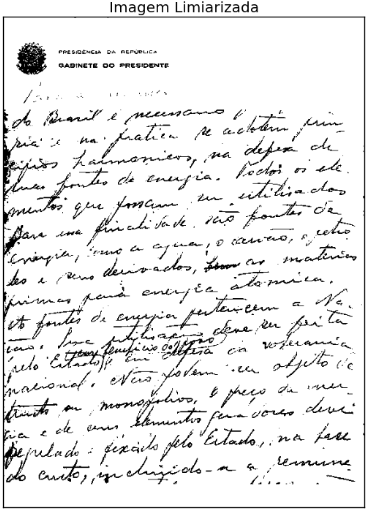 Imagem Limiarizada
PRESIDÊNCIA DA REPÚBLICA
GABINETE DO PRESIDENTE
do Brasil é necessario
ria e na pratica se adotem prin
cipios harmonicos, na defesa de
suas fontes de energia. Todos os ele
mentos que possam ser utilisados
para essa finalidade são fontes de
energia, como a agua, o carvão, o petro
leo e seus derivados, as materias
primas para energia atomica.
As fontes de energia pertencem a Na
ção. Sua utilisação deve ser feita
pelo Estado, em defesa da soberania
nacional. Não podem ser objeto de
trusts ou monopolios. O preço da ener
gia e de seus elementos geradores deve
regulado e fixado pelo Estado, na base
do custo, incluindo-se a remune